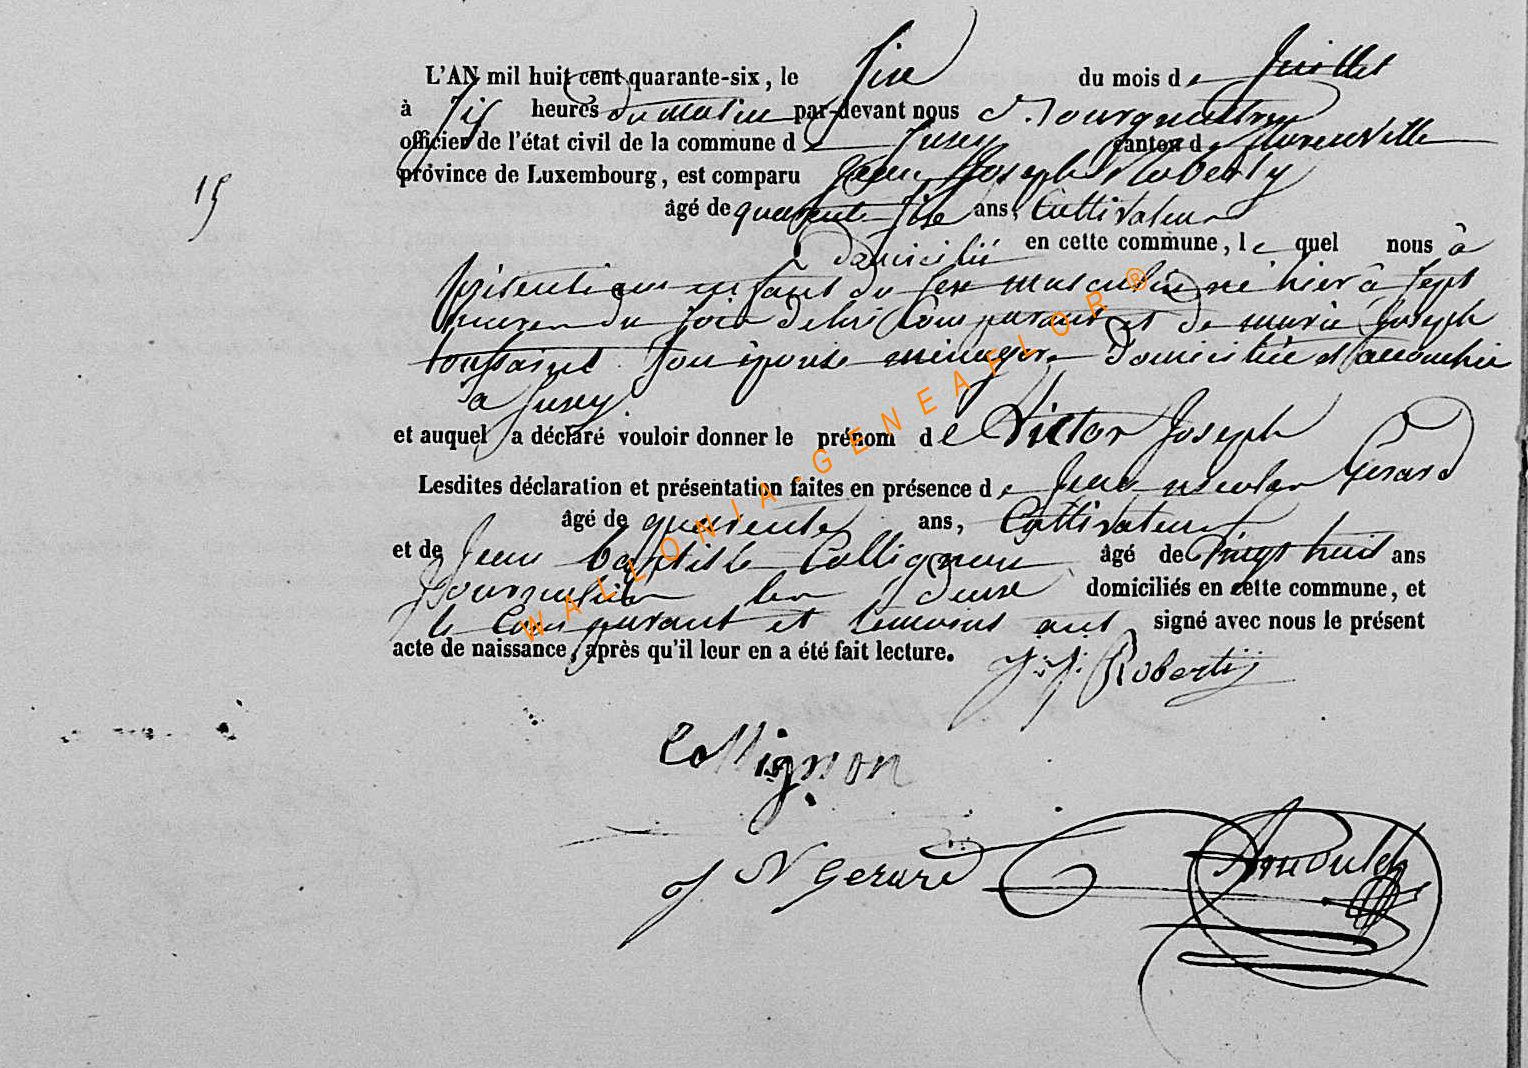 L'AN mil huit cent quarante-six, le six du mois de Juillet
à six heures du matin par-devant nous Bourguemestre
officier de l'état civil de la commune de Suxy canton de florenville
province de Luxembourg, est comparu Jean Joseph Roberty
15
âgé de quarante six ans, Cultivateur
domicilié en cette commune, le quel nous à
présenté un enfant du sexe masculin né hier à sept
heures du soir de lui Comparant et de marie Joseph
toussaint son épouse ménagere domiciliée et accouchée
à Suxy.
et auquel a déclaré vouloir donner le prénom de Victor Joseph
Lesdites déclaration et présentation faites en présence de Jean nicolas Gerard
âgé de quarente ans, Cultivateur
et de Jean baptiste Collignon âgé de vingt huit ans
Journalier les deux domiciliés en cette commune, et
le Comparant et temoins ont signé avec nous le présent
acte de naissance, après qu'il leur en a été fait lecture.
J. J. Roberty
Collignon
J N Gerard
WALLONIA-GENEAFLOR®